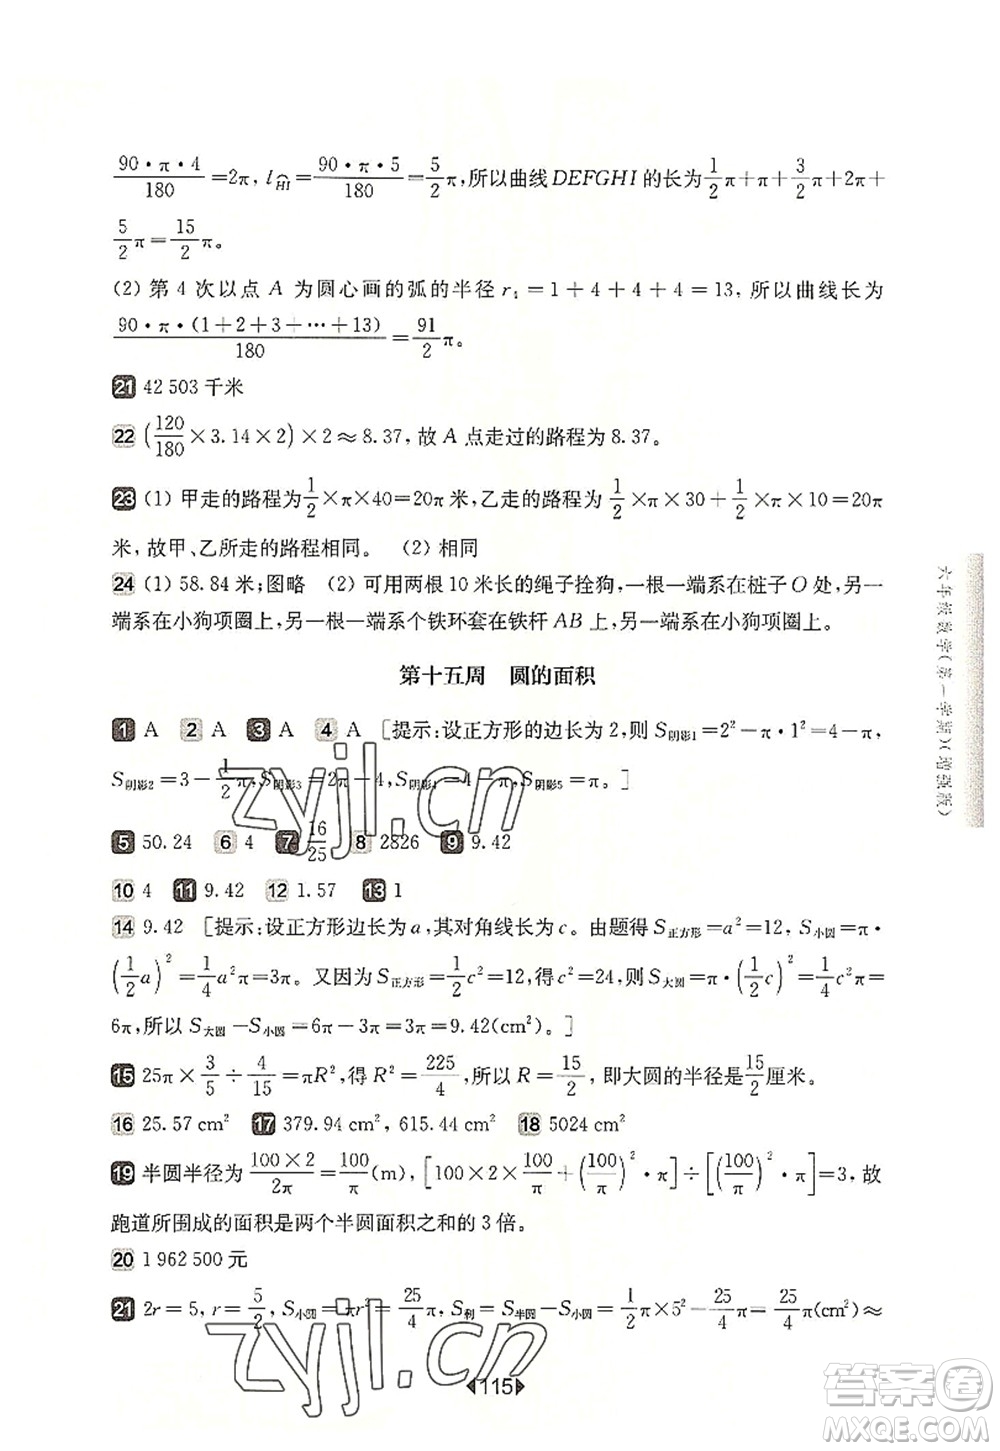 90·π·4/180=2π, l⌢HI=90·π·5/180=5/2π,所以曲线DEFGHI的长为1/2π+π+3/2π+2π+
5/2π=15/2π。
(2) 第 4 次以点 A 为圆心画的弧的半径 r₁=1+4+4+4=13, 所以曲线长为
90·π·(1+2+3+···+13)/180=91/2π。
21 42 503 千米
22 (120/180×3.14×2)×2≈8.37, 故 A 点走过的路程为 8.37。
23 (1) 甲走的路程为1/2×π×40=20π 米,乙走的路程为 1/2×π×30+1/2×π×10=20π
米,故甲、乙所走的路程相同。 (2) 相同
24 (1) 58.84 米;图略 (2) 可用两根 10 米长的绳子拴狗,一根一端系在桩子 O 处,另一
端系在小狗项圈上,另一根一端系个铁环套在铁杆 AB 上,另一端系在小狗项圈上。
第十五周 圆的面积
1 A 2 A 3 A 4 A [提示:设正方形的边长为 2,则 S阴影1=2²-π·1²=4-π,
S阴影2=3-1/2π,S阴影3=2π-4,S阴影4=4-π,S阴影5=π。]
5 50.24 6 4 7 16/25 8 2826 9 9.42
10 4 11 9.42 12 1.57 13 1
14 9.42 [提示:设正方形边长为a,其对角线长为c。由题得S正方形=a²=12, S小圆=π·
(1/2a)²=1/4a²π=3π。又因为S正方形=1/2c²=12,得c²=24,则S大圆=π·(1/2c)²=1/4πc²=
6π,所以 S大圆-S小圆=6π-3π=3π=9.42(cm²)。]
15 25π×3/5÷4/15=πR²,得 R²=225/4,所以 R=15/2, 即大圆的半径是15/2厘米。
16 25.57 cm² 17 379.94 cm², 615.44 cm² 18 5024 cm²
19 半圆半径为100×2/2π=100/π(m), [100×2×100/π+(100/π)²·π]÷[(100/π)²·π]=3, 故
跑道所围成的面积是两个半圆面积之和的 3 倍。
20 1 962 500 元
21 2r=5, r=5/2, S小圆=πr²=25/4π, S利=S半圆-S小圆=1/2π×5²-25/4π=25/4π(cm²)≈
115
六年级数学(第一学期)(增强版)
zyjl.cn
zyjl.cn
答案圈
MXQE.COM